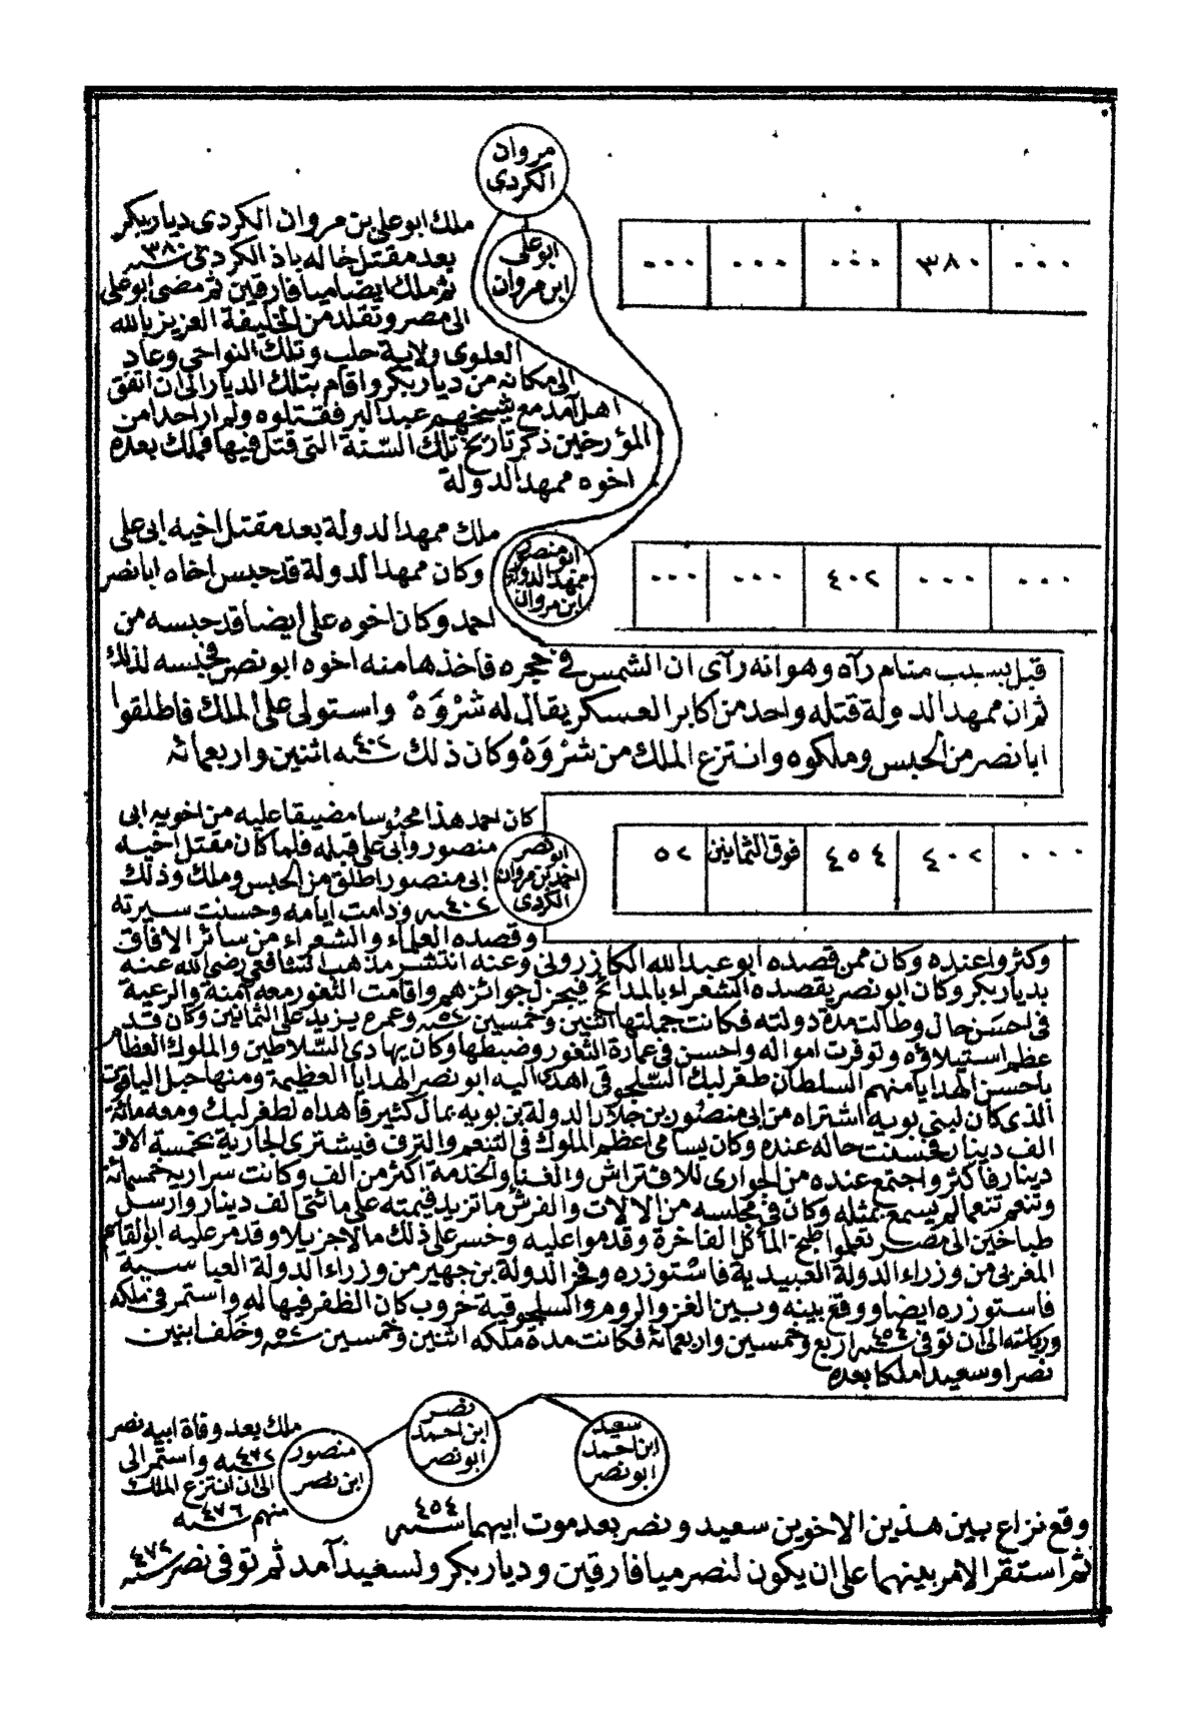 مروان
الكردى
ملك ابوعلى بن مروان الكردى دياربكر
بعد مقتل خاله باذ الكردى سنه ٣٨٠
ثم ملك ايضا ميافارقين ثم مضى ابوعلى
الى مصر وتقلد من الخليفة العزيز بالله
العلوى ولاية حلب وتلك النواحى وعاد
الى مكانه من دياربكر واقام بتلك الديار الى ان اتفق
اهل آمد مع شيخهم عبد البر فقتلوه ولم ار احدا من
المؤرخين ذكر تاريخ تلك السنة التى قتل فيها فملك بعده
اخوه ممهد الدولة
ابوعلى
ابن مروان
٠٠٠ ٣٨٠ ٠٠٠ ٠٠٠ ٠٠٠
ملك ممهد الدولة بعد مقتل اخيه ابى على
وكان ممهد الدولة قد حبس اخاه ابا نصر
احمد وكان اخوه على ايضا قد حبسه من
ابو منصور
ممهد الدولة
ابن مروان
٠٠٠ ٠٠٠ ٤٠٢ ٠٠٠ ٠٠٠
قبل بسبب منام رآه وهو انه رآى ان الشمس فى حجره فاخذها منه اخوه ابو نصر فحبسه لذلك
ثم ان ممهد الدولة قتله واحد من اكابر العسكر يقال له شَرْوَهْ واستولى على الملك فاطلقوا
ابا نصر من الحبس وملكوه وانتزع الملك من شَرْوَهْ وكان ذلك سنه ٤٠٢ اثنين واربعمائه
كان احمد هذا محبوسا مضيقا عليه من اخويه ابى
منصور وابى على قبله فلما كان مقتل اخيه
ابى منصور اطلق من الحبس وملك وذلك
سنه ٤٠٢ ودامت ايامه وحسنت سيرته
وقصده العلماء والشعراء من سائر الافاق
ابو نصر
احمد بن مروان
الكردى
٠٠٠ ٤٠٢ ٤٥٤ فوق الثمانين ٥٢
وكثروا عنده وكان ممن قصده ابو عبد الله الكازرونى وعنه انتشر مذهب الشافعى رضى الله عنه
بدياربكر وكان ابو نصر يقصده الشعراء بالمدائح فيجزل جوائزهم واقامت الثغور معه آمنة والرعية
فى احسن حال وطالت مدة دولته فكانت جملتها اثنين وخمسين سنه ٥٢ وعمره يزيد على الثمانين وكان قد
عظم استيلاؤه وتوفرت امواله واحسن فى عمارة الثغور وضبطها وكان يهادى السلاطين والملوك العظام
باحسن الهدايا منهم السلطان طغرلبك السلجوقى اهدى اليه ابو نصر الهدايا العظيمة ومنها جبل الياقوت
الذى كان لبنى بويه اشتراه من ابى منصور بن جلال الدولة بن بويه بمال كثير فاهداه لطغرلبك ومعه مائة
الف دينار فحسنت حاله عنده وكان يسامى اعظم الملوك فى التنعم والترف فيشترى الجارية بخمسة الاف
دينار فاكثر واجتمع عنده من الجوارى للافتراش والغناء والخدمة اكثر من الف وكانت سراريه خمسمائة
وتنعم تنعما لم يسمع بمثله وكان فى مجلسه من الالات والفرش ما تزيد قيمته على مائتى الف دينار وارسل
طباخين الى مصر تعلموا طبخ المأكل الفاخرة وقدموا عليه وخسر على ذلك مالا جزيلا وقدم عليه ابوالقاسم
المغربى من وزراء الدولة العبيدية فاستوزره وفخر الدولة بن جهير من وزراء الدولة العباسية
فاستوزره ايضا ووقع بينه وبين الغز والروم والسلجوقية حروب كان الظفر فيها له واستمر فى ملكه
ورياسته الى ان توفى سنه ٤٥٤ اربع وخمسين واربعمائة فكانت مدة ملكه اثنين وخمسين سنه ٥٢ وخلف ابنين
نصرا وسعيدا ملكا بعده
سعيد
ابن احمد
ابو نصر
نصر
ابن احمد
ابو نصر
منصور
ابن نصر
ملك بعد وفاة ابيه نصر
سنه ٤٧٢ واستمر الى
الى ان انتزع الملك
منهم سنه ٤٧٦
وقع نزاع بين هذين الاخوين سعيد ونصر بعد موت ابيهما سنه ٤٥٤
ثم استقر الامر بينهما على ان يكون لنصر ميافارقين ودياربكر ولسعيد آمد ثم توفى نصر سنه ٤٧٢